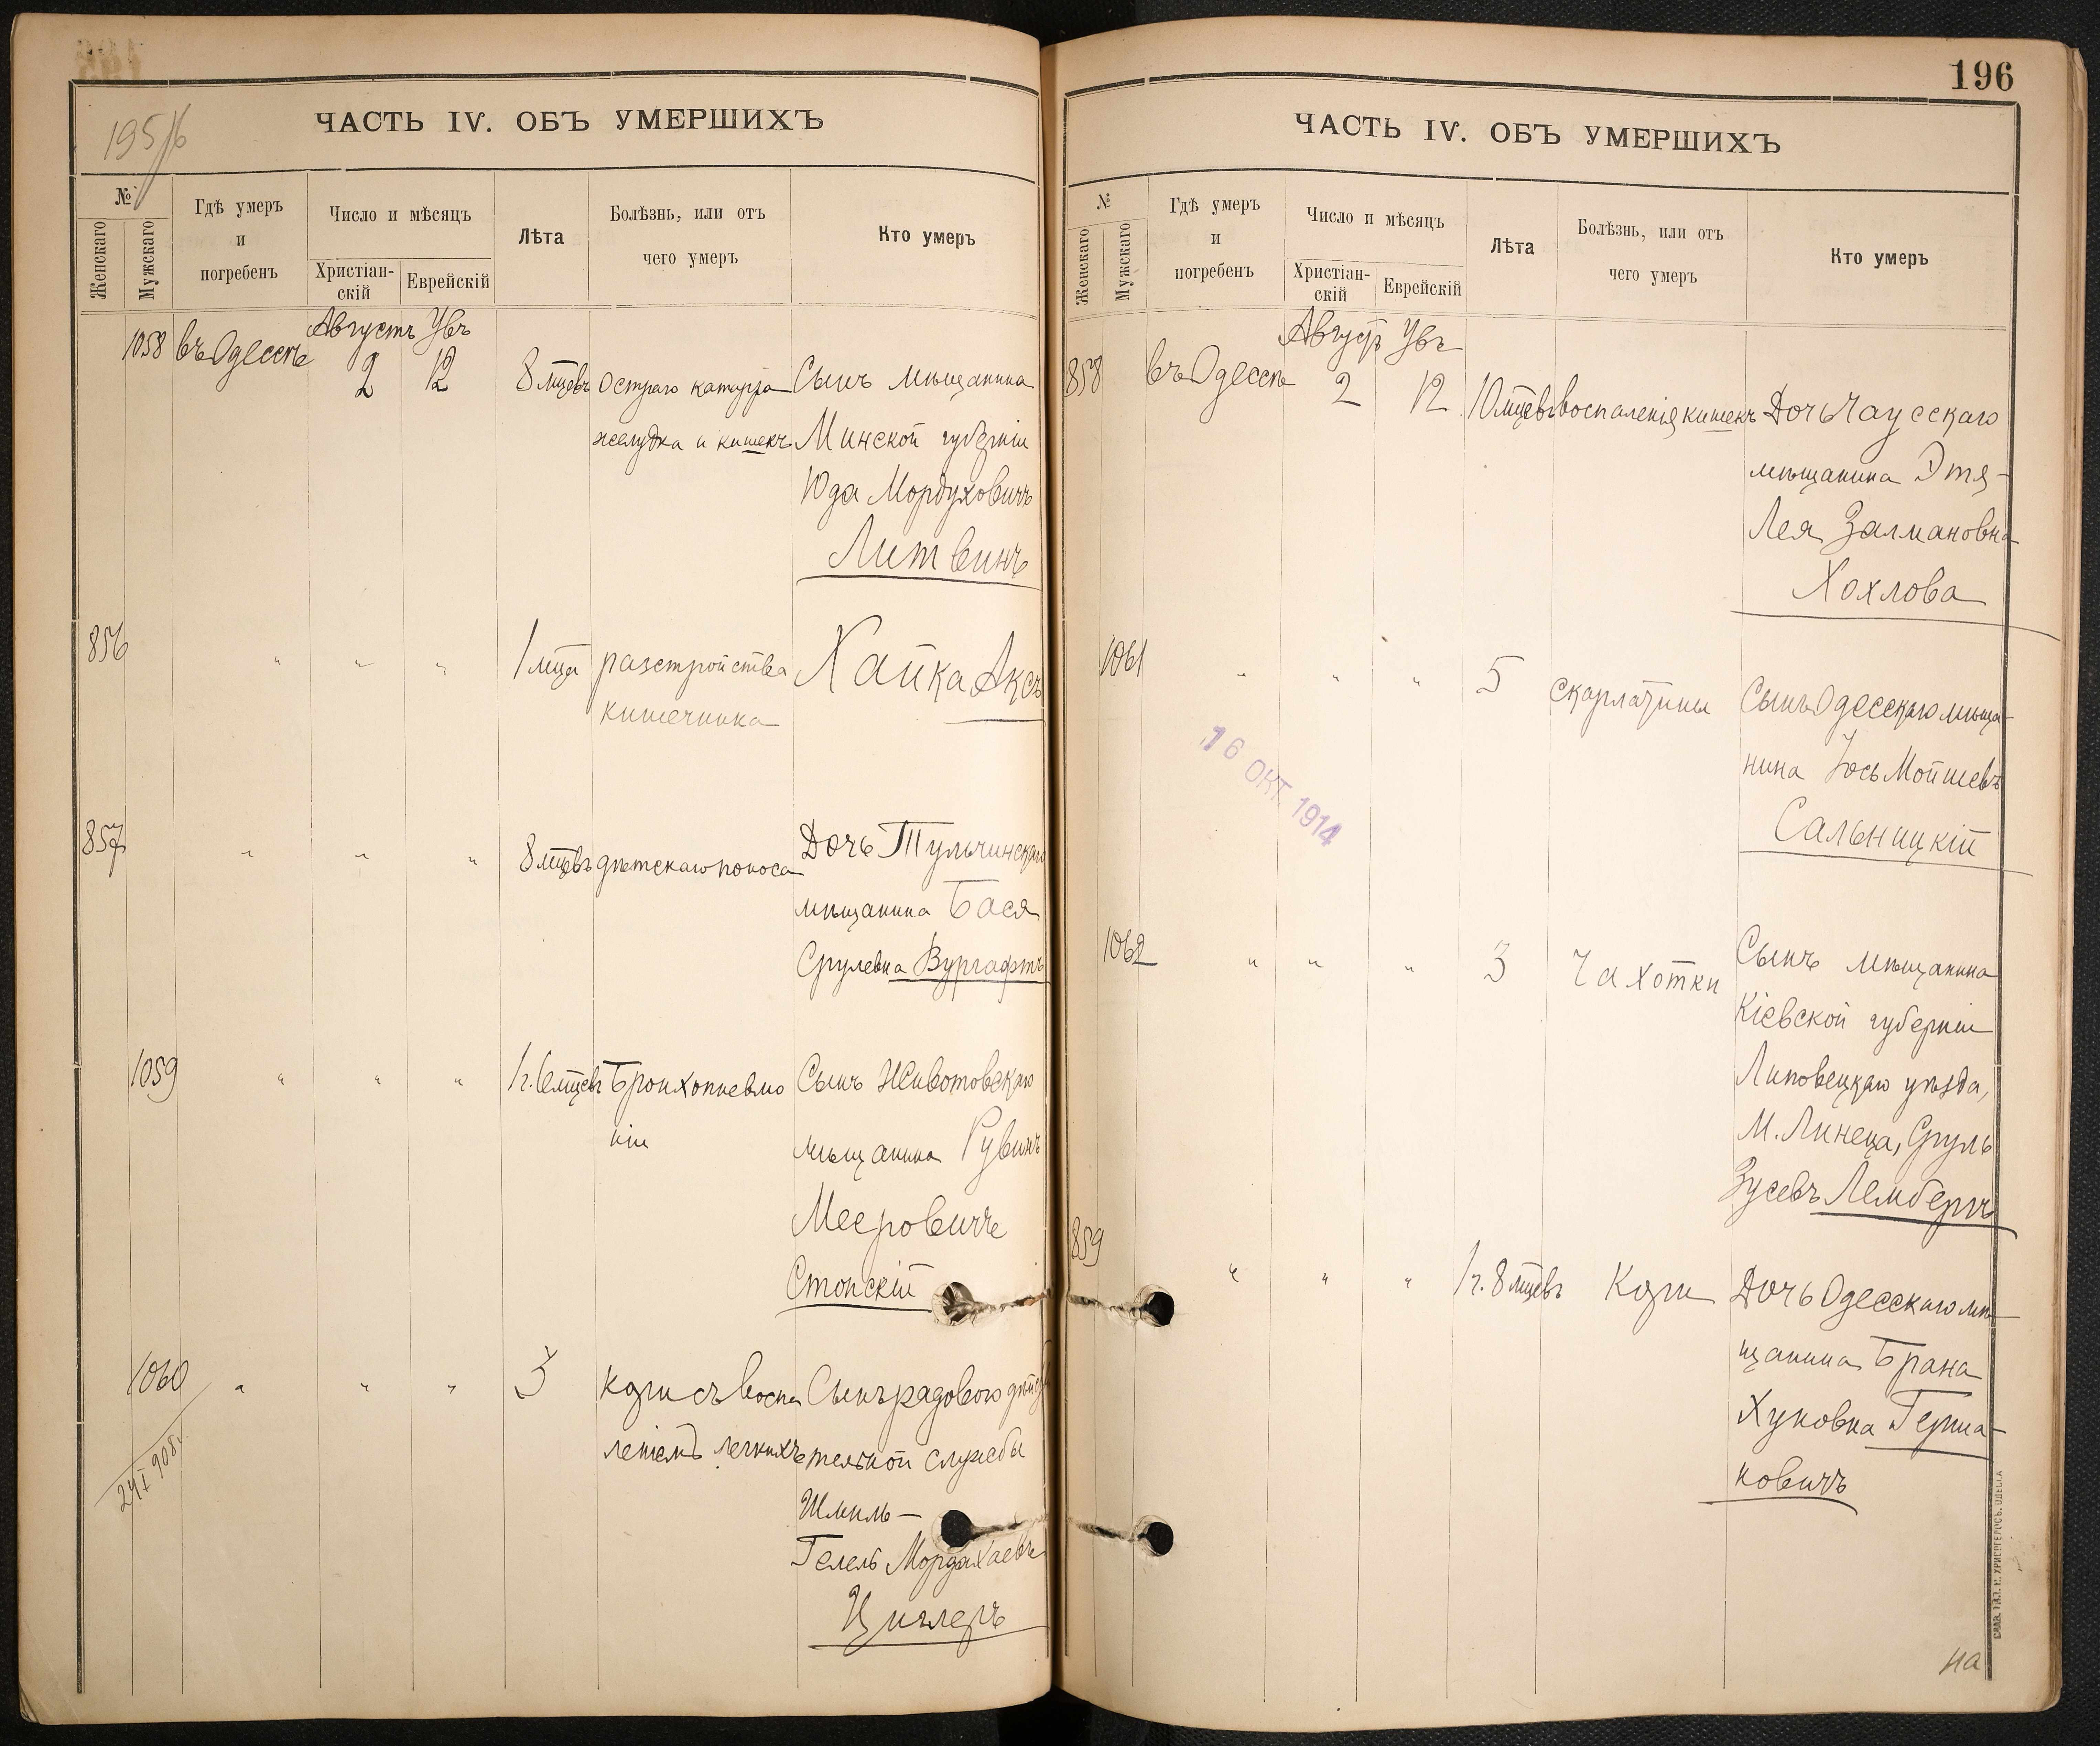 195/6
ЧАСТЬ IV. ОБЪ УМЕРШИХЪ
№
Женскаго
Мужскаго
Гдѣ умеръ
и
погребенъ
Число и мѣсяцъ
Христіан-
скій
Еврейскій
Лѣта
Болѣзнь, или отъ
чего умеръ
Кто умеръ
1058
въ Одессѣ
Августъ
2
Увъ
12
8 мцевъ
Остраго катарра
желудка и кишекъ
Сынъ мѣщанина
Минской губерніи
Юда Мордуховичъ
Литвинъ
856
"
"
"
1 мца
разстройства
кишечника
Хайка Аксъ
857
"
"
"
8 мцевъ
дѣтскаго поноса
Дочь Тульчинскаго
мѣщанина Бася
Срулевна Вургафтъ
1059
"
"
"
1 г. 6 мцевъ
Бронхопневмо
ніи
Сынъ Животовскаго
мѣщанина Рувинъ
Мееровичъ
Стопскій
1060
24/I 908 г.
"
"
"
3
Кори съ воспа
леніемъ легкихъ
Сынъ рядового дѣйстви
тельной службы
Шмиль-
Гелель Мордхаевъ
Циглеръ
196
ЧАСТЬ IV. ОБЪ УМЕРШИХЪ
№
Женскаго
Мужскаго
Гдѣ умеръ
и
погребенъ
Число и мѣсяцъ
Христіан-
скій
Еврейскій
Лѣта
Болѣзнь, или отъ
чего умеръ
Кто умеръ
858
въ Одессѣ
Августъ
2
Увъ
12
10 мцевъ
воспаленія кишекъ
Дочь Чаусскаго
мѣщанина Этя-
Лея Залмановна
Хохлова
1061
"
"
"
5
скарлатины
Сынъ Одесскаго мѣща-
нина Іось Мойшевъ
Сальницкій
16 ОКТ. 1914
1062
"
"
"
3
Чахотки
Сынъ мѣщанина
Кіевской губерніи
Липовецкаго уѣзда,
М. Линеца, Сруль
Зусевъ Лембергъ
859
"
"
"
1 г. 8 мцевъ
Кори
Дочь Одесскаго мѣ-
щанина Брана
Хуновна Герша-
ковичъ
на